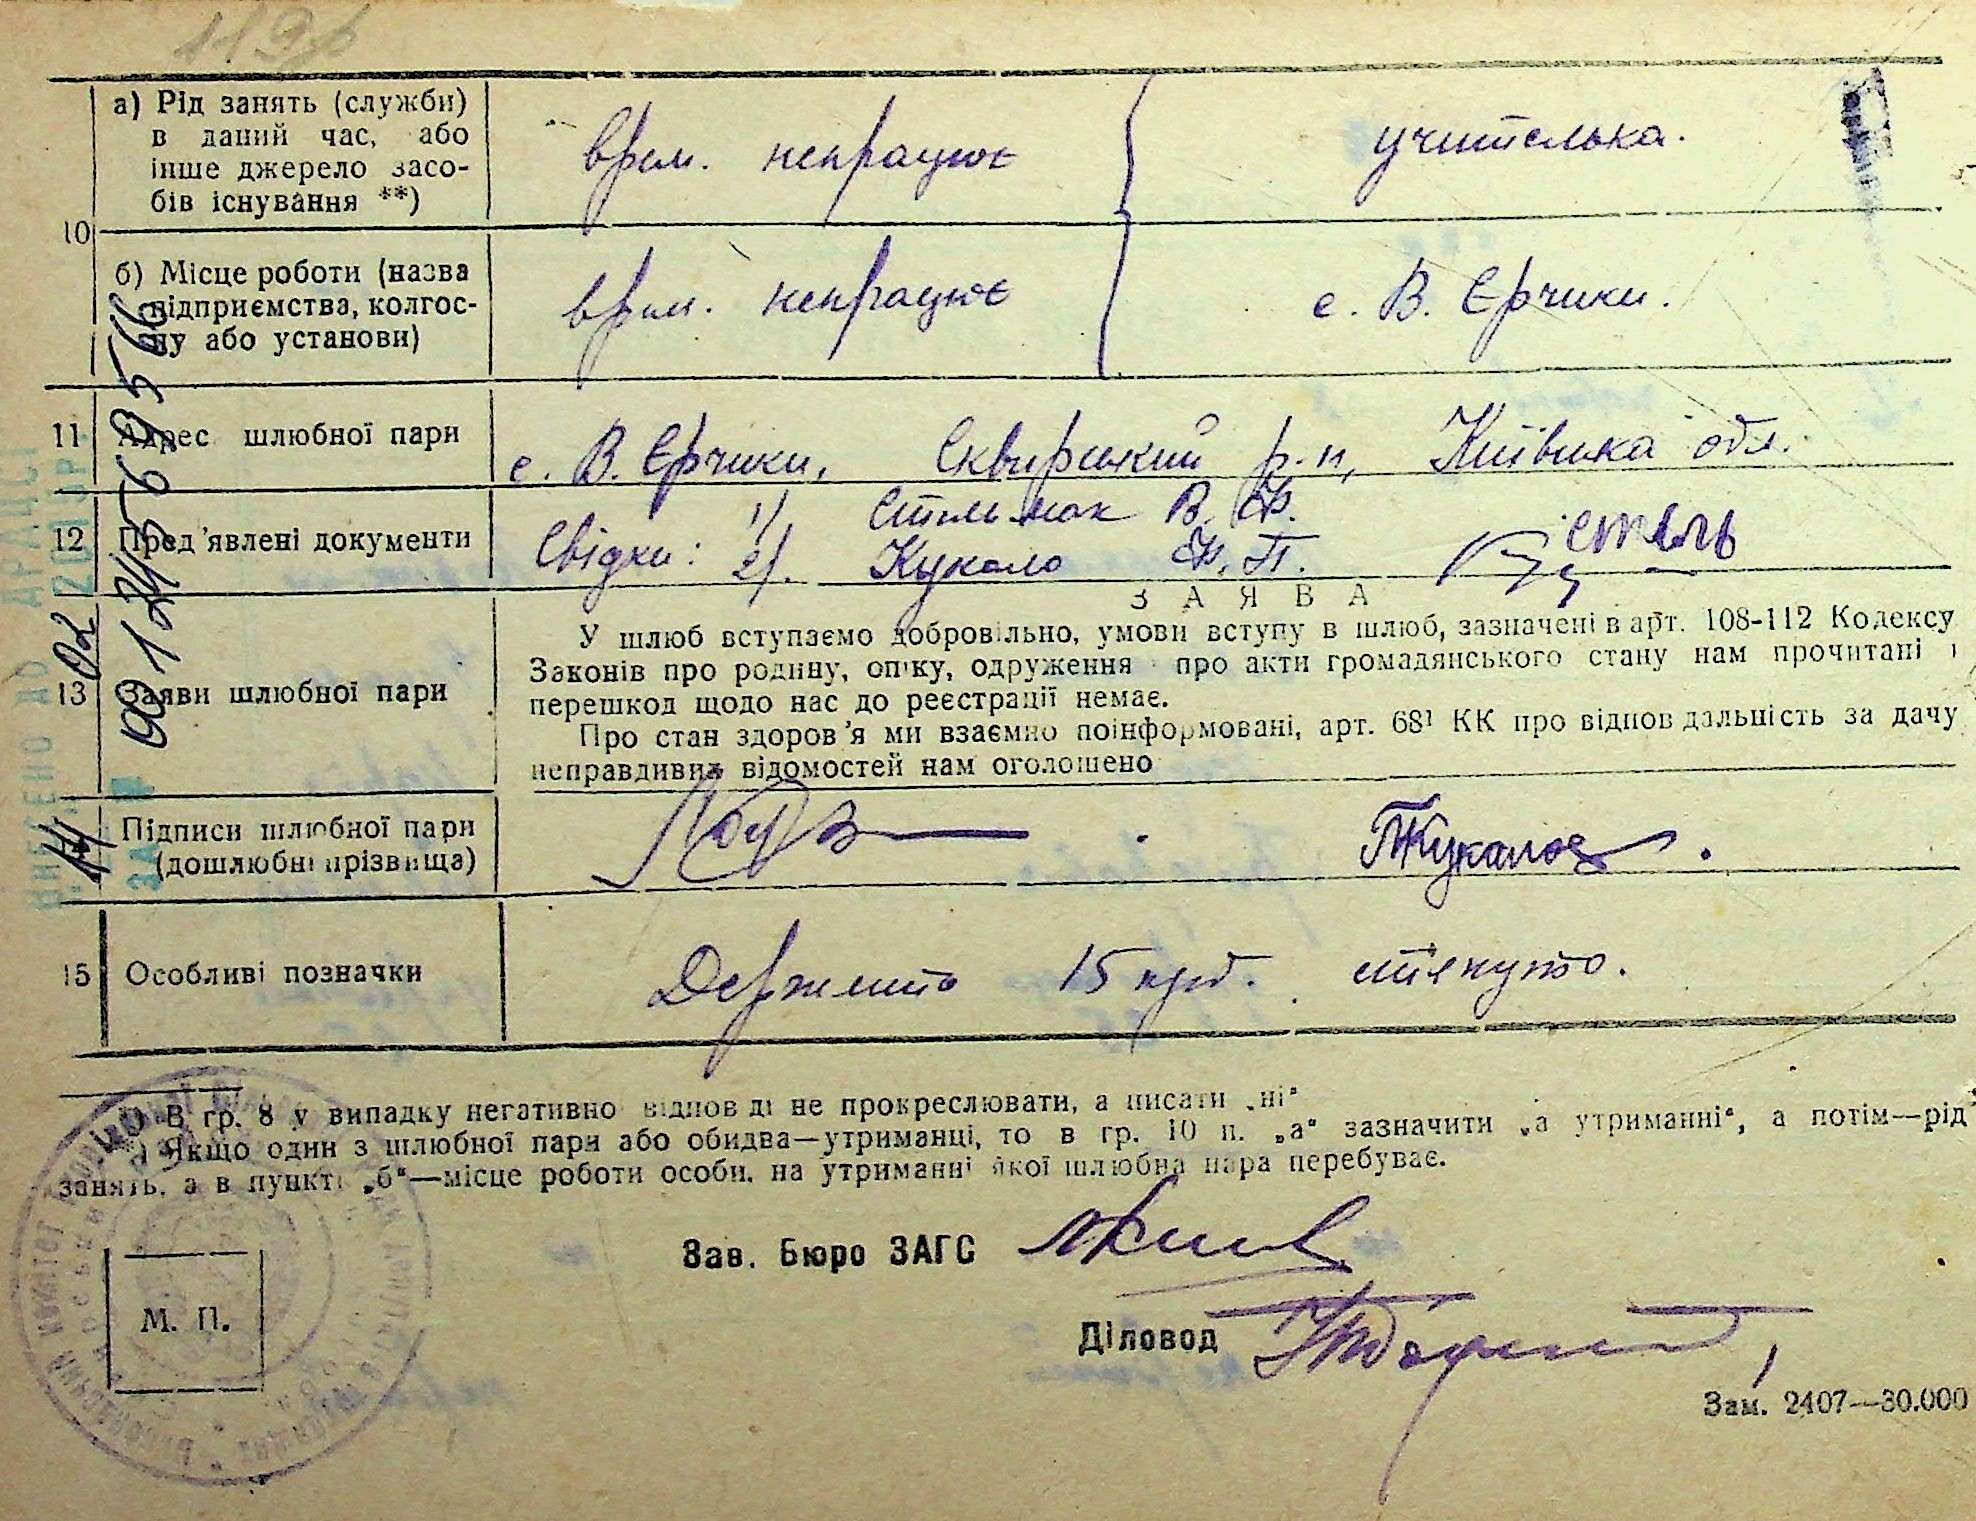 а) Рід занять (служби)
в даний час, або
інше джерело засо-
бів існування **)
врем. непрацює
учителька.
10
б) Місце роботи (назва
підприємства, колгос-
пу або установи)
врем. непрацює
с. В. Єрчики.
11 Адрес шлюбної пари
с. В. Єрчики, Сквирський р-н, Київська обл.
12 Пред'явлені документи
Свідки: 1/ Стельмах В. Ф.
2/. Кукало Ф. П.
ЗАЯВА
13 Заяви шлюбної пари
У шлюб вступаємо добровільно, умови вступу в шлюб, зазначені в арт. 108-112 Кодексу
Законів про родину, опіку, одруження і про акти громадянського стану нам прочитані і
перешкод щодо нас до реєстрації немає.
Про стан здоров'я ми взаємно поінформовані, арт. 68¹ КК про відповідальність за дачу
неправдивих відомостей нам оголошено
14 Підписи шлюбної пари
(дошлюбні прізвища)
15 Особливі позначки
Держмито 15 крб. стягнуто.
*) В гр. 8 у випадку негативно відповіді не прокреслювати, а писати „ні"
**) Якщо один з шлюбної пари або обидва—утриманці, то в гр. 10 п. „а" зазначити „а утриманні", а потім—рід
занять, а в пункті „б"—місце роботи особи, на утриманні якої шлюбна пара перебуває.
Зав. Бюро ЗАГС
М. П.
Діловод
Зам. 2407—30.000
00124569566